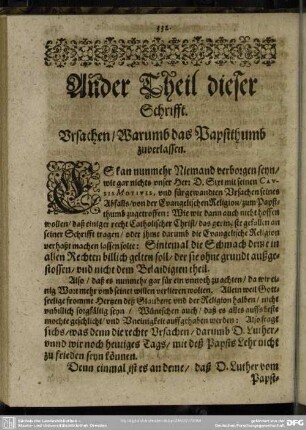 112.
Ander Theil dieser
Schrifft.
Vrsachen/Warumb das Papstthumb
zuverlassen.
ES kan nunmehr Niemand verborgen seyn/
wie gar nichts vnser Herr D. Sixt mit seinen Cau-
sis Motivis, vnd fürgewandten Vrsachen seines
Abfalls/von der Evangelischen Religion/zum Papst-
thumb zugetroffen: Wie wir dann auch nicht hoffen
wollen/daß einiger recht Catholischer Christ/das geringste gefallen an
seiner Schrifft tragen/oder ihme darumb die Evangelische Religion
verhaßt machen lassen solte: Sintemal die Schmach deme in
allen Rechten billich gelten soll/der sie ohne grundt außge-
stossen/vnd nicht dem Belaidigten theil.
Also/daß es nunmehr gar für vnnoth zu achten/da wir ei-
nig Wort mehr vmb seinet willen verlieren wolten. Allein weil Gott-
seelige fromme Hertzen deß Glaubens vnd der Religion halben/nicht
vnbillich sorgfältig seyn/Wünschen auch/daß es alles auffs beste
möchte geschlicht/vnd Vneinigkeit auffgehaben werden: Also fragt
sichs/was denn die rechte Vrsachen/darumb D. Luther/
vnnd wir noch heutiges Tags/mit deß Papsts Lehr nicht
zu frieden seyn können.
Denn einmal ist es an deme/daß D. Luther vom
Papst-